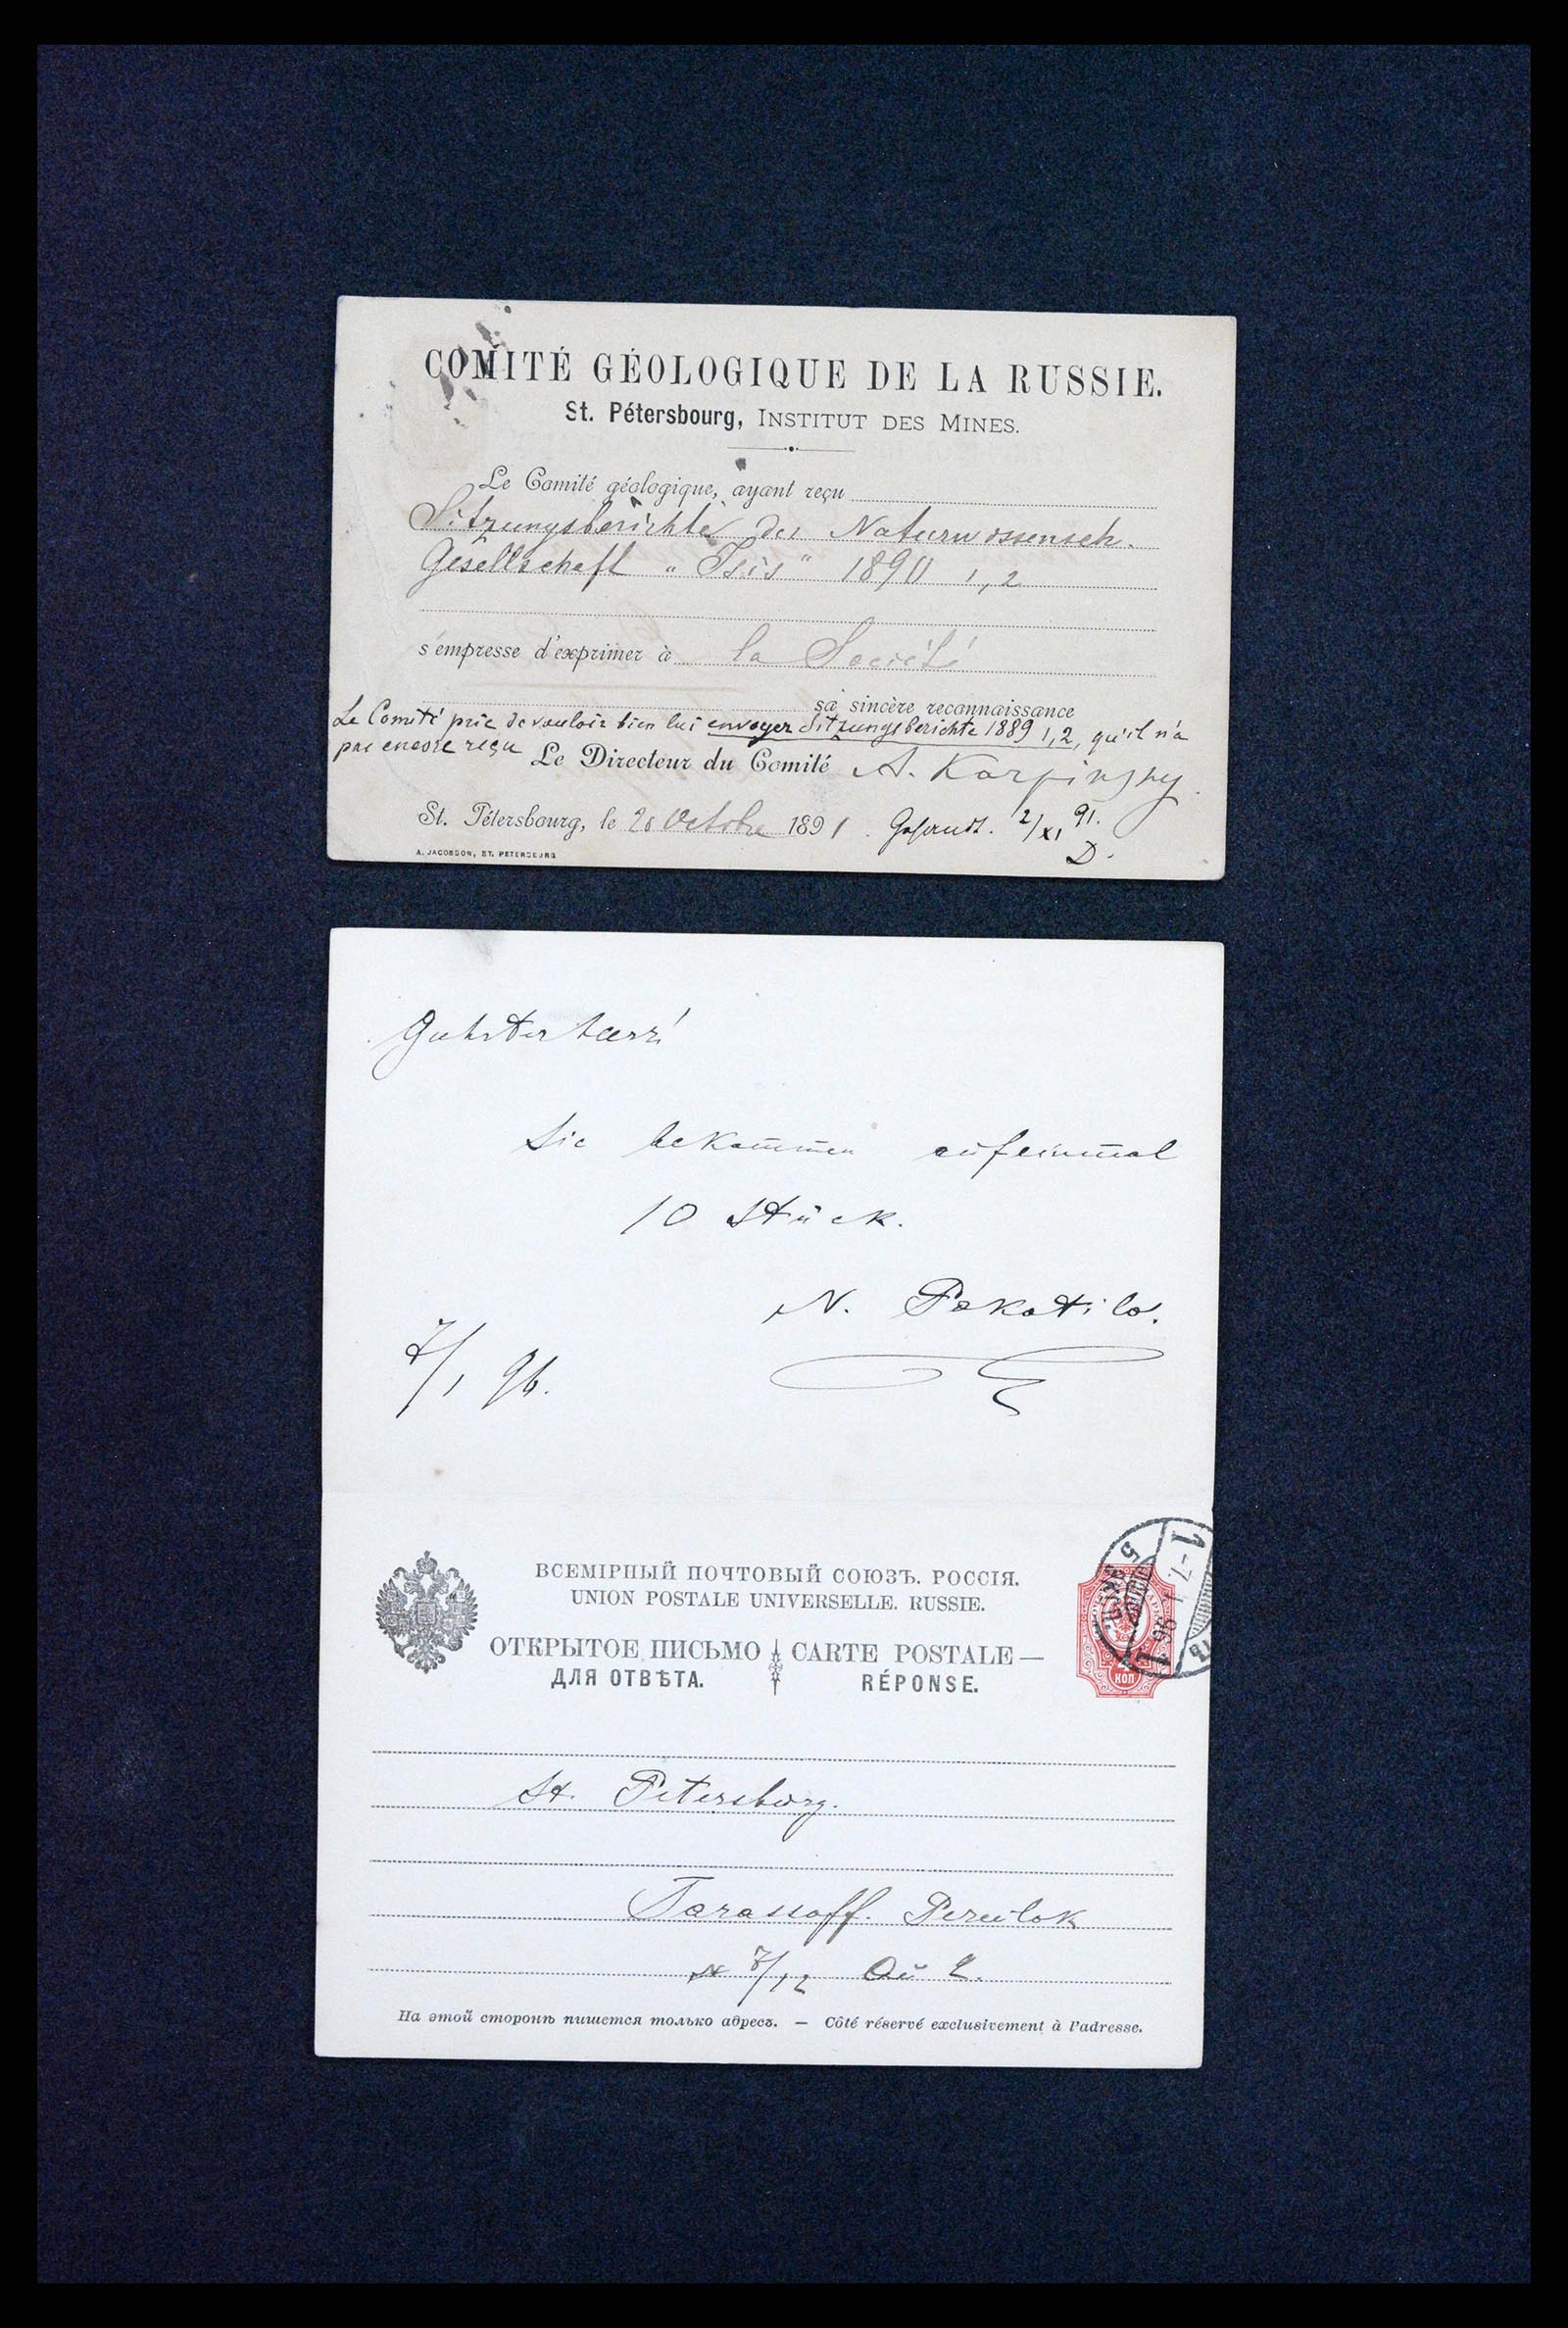 COMITÉ GÉOLOGIQUE DE LA RUSSIE.
St. Pétersbourg, INSTITUT DES MINES.
Le Comité géologique, ayant reçu
Sitzungsberichte der Naturwissensch.
Gesellschaft „Isis“ 1890 1, 2
s'empresse d'exprimer à la Société
sa sincère reconnaissance
Le Comité prie de vouloir bien lui envoyer Sitzungsberichte 1889 1, 2, qu'il n'a
pas encore reçu
Le Directeur du Comité A. Karpinsky.
St. Pétersbourg, le 20 Octobre 1891. Gesandt. 2/XI 91.
D.
A. JACOBSON, ST. PETERSBURG
Geehrter Herr!
Sie bekommen aufeinmal
10 Stück.
N. Pokotilo.
7/1 96.
ВСЕМІРНЫЙ ПОЧТОВЫЙ СОЮЗЪ. РОССІЯ.
UNION POSTALE UNIVERSELLE. RUSSIE.
ОТКРЫТОЕ ПИСЬМО CARTE POSTALE —
ДЛЯ ОТВѢТА. RÉPONSE.
4 КОП
St. Petersburg.
Tarassoff. Pereulok
№ 8/12 2.
На этой сторонѣ пишется только адресъ. — Côté réservé exclusivement à l'adresse.